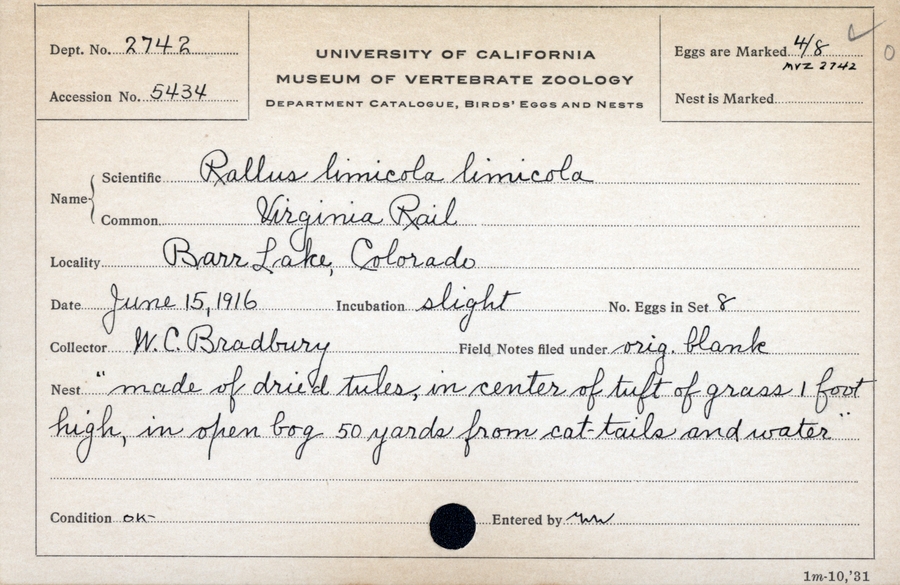 Dept. No. 2742
Accession No. 5434
UNIVERSITY OF CALIFORNIA
MUSEUM OF VERTEBRATE ZOOLOGY
DEPARTMENT CATALOGUE, BIRDS' EGGS AND NESTS
Eggs are Marked 4/8
MVZ 2742
Nest is Marked
0
Name
Scientific Rallus limicola limicola
Common Virginia Rail
Locality Barr Lake, Colorado
Date June 15, 1916 Incubation slight No. Eggs in Set 8
Collector W. C. Bradbury Field Notes filed under orig. blank
Nest "made of dried tules, in center of tuft of grass 1 foot
high, in open bog 50 yards from cat-tails and water"
Condition OK- Entered by
1m-10,'31